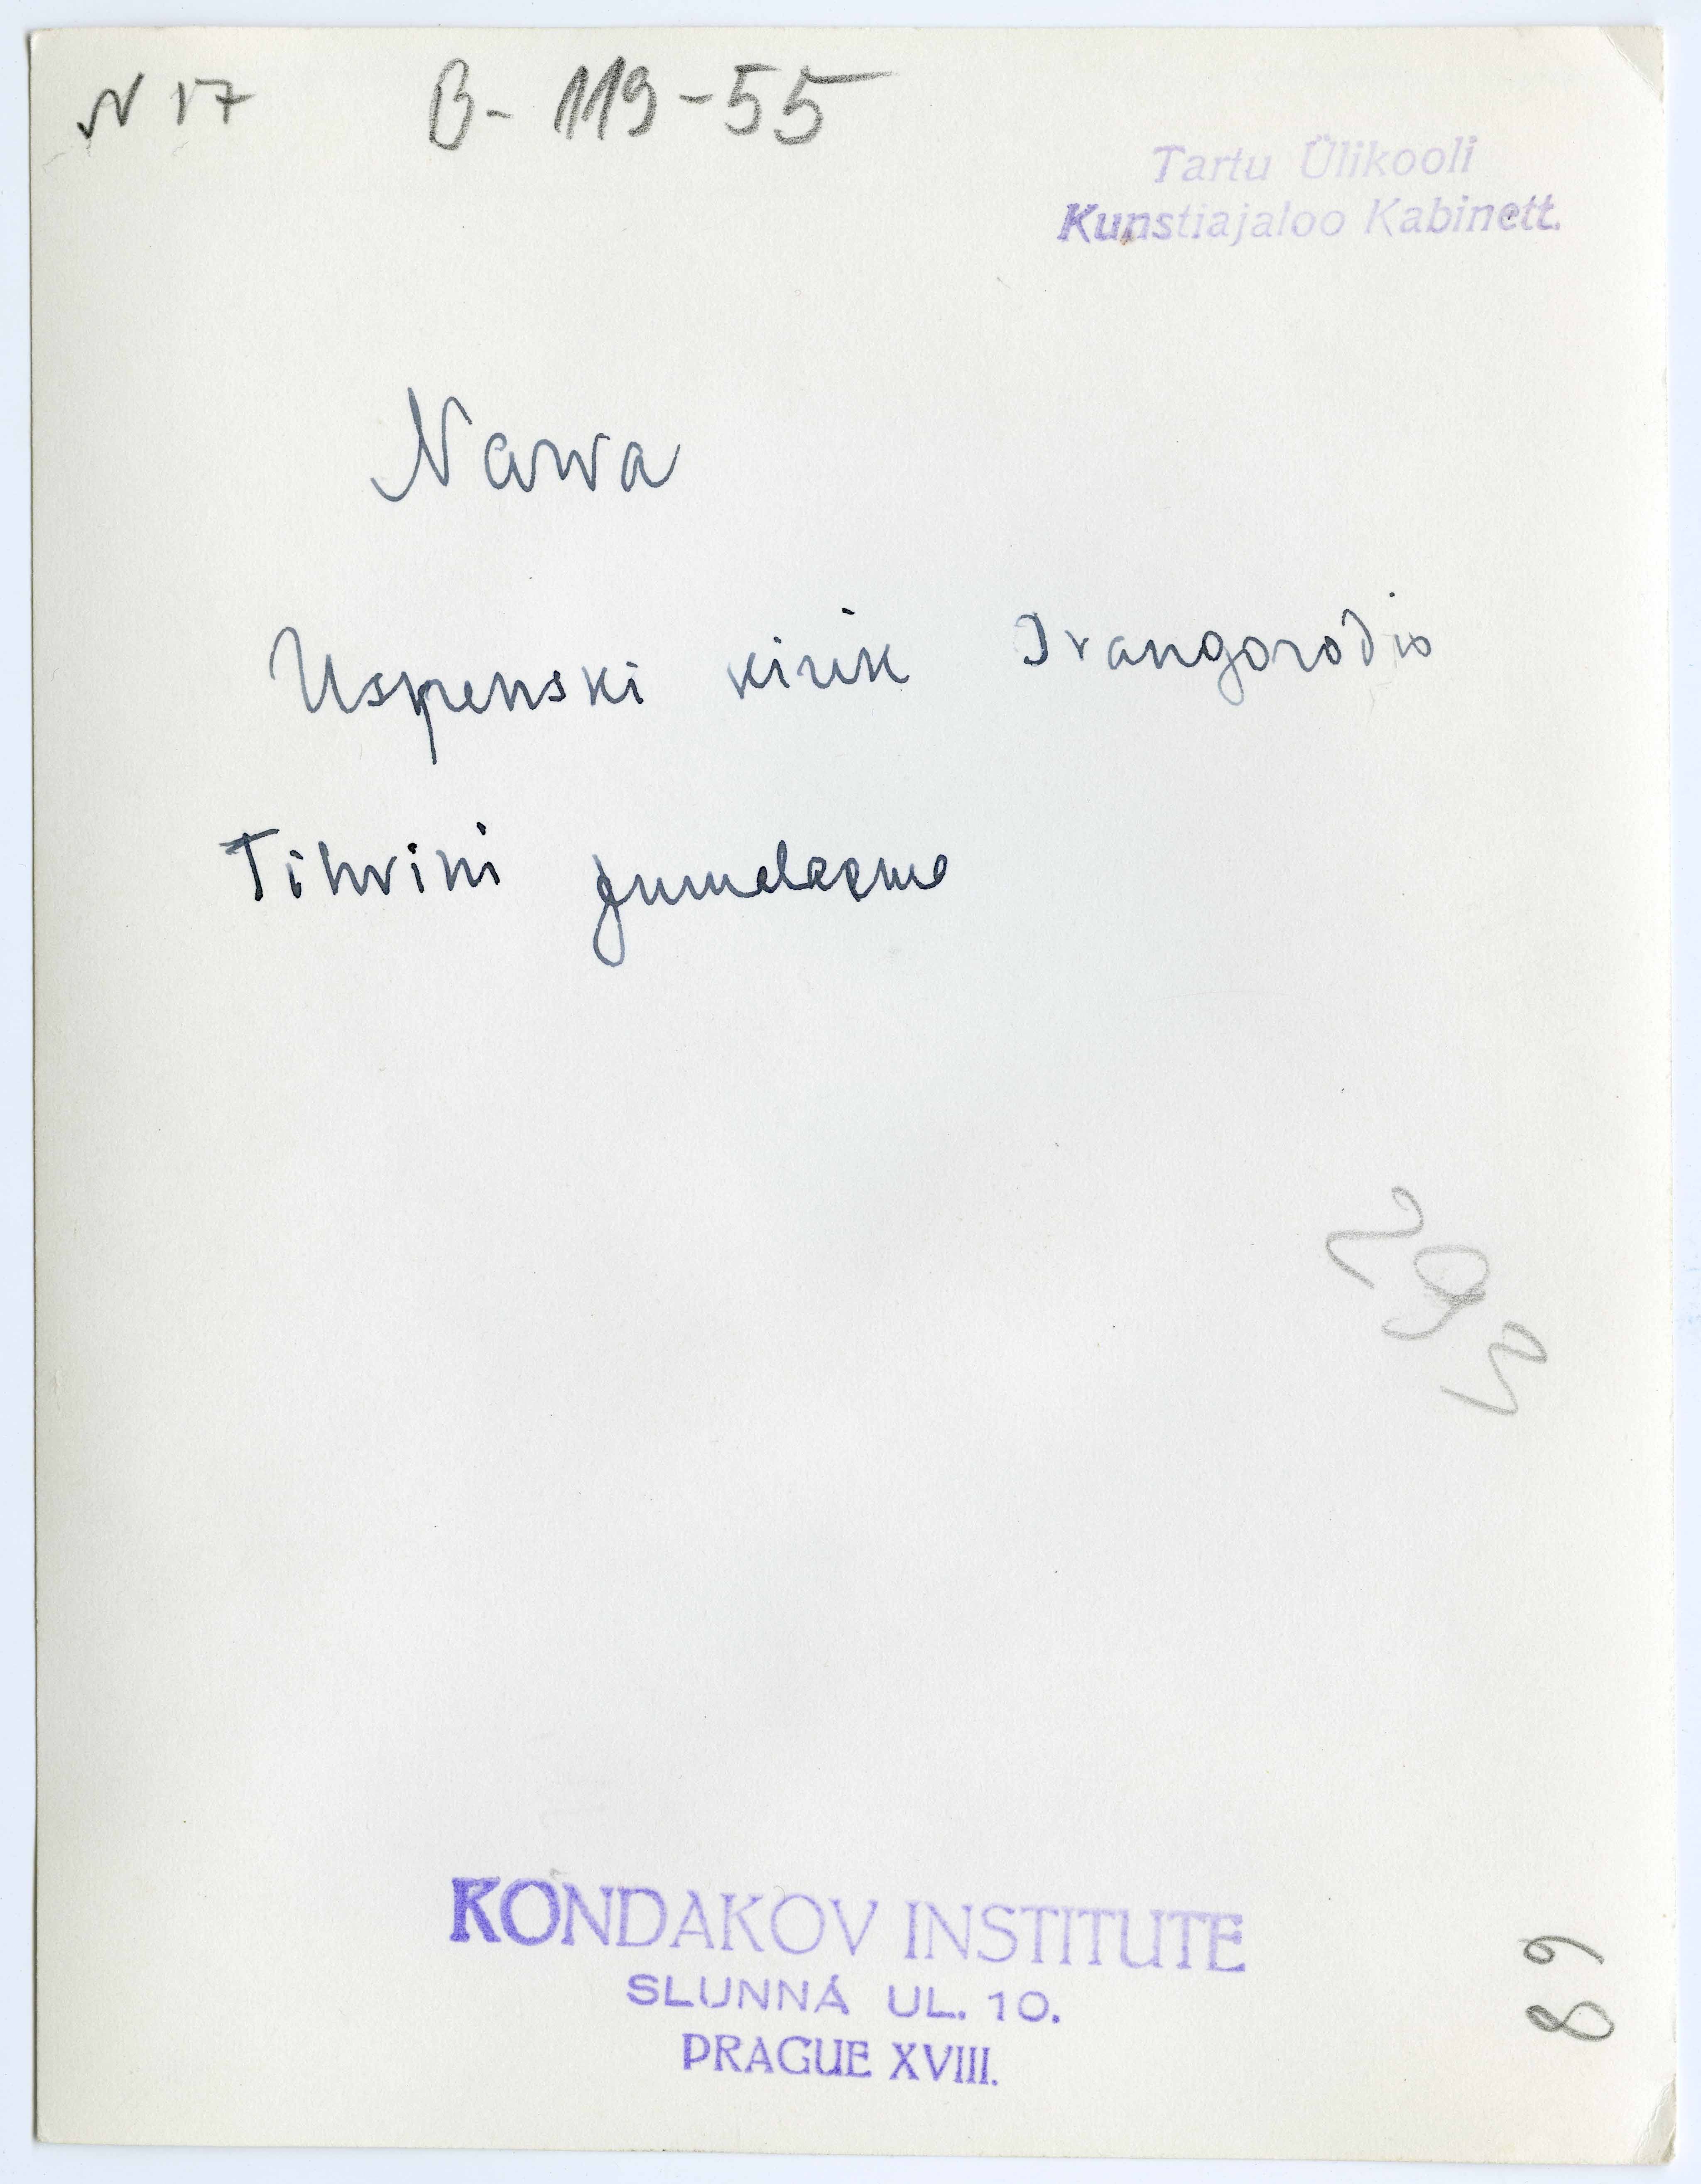 N 17 B-119-55
Tartu Ülikooli
Kunstiajaloo Kabinett.
Narva
Uspenski kirik Ivangorodis
Tihvini jumalaema
293
89
KONDAKOV INSTITUTE
SLUNNÁ UL. 10.
PRAGUE XVIII.